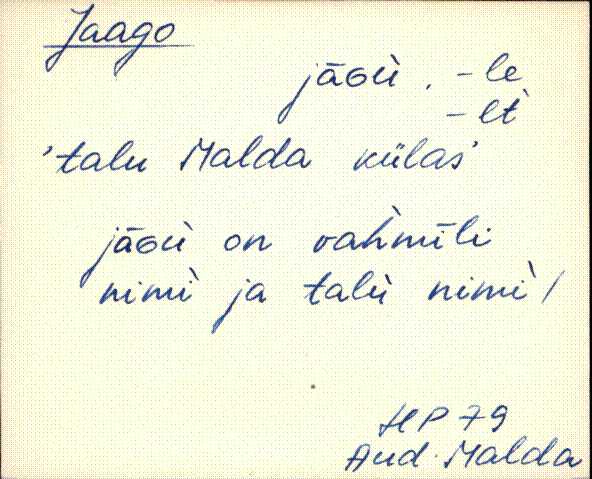 Jaago
jāGù, -le
-lt̀
'talu Malda külas'
jāGù on vah̀mīli
nimì ja talù nimì/
HP 79
Aud. Malda